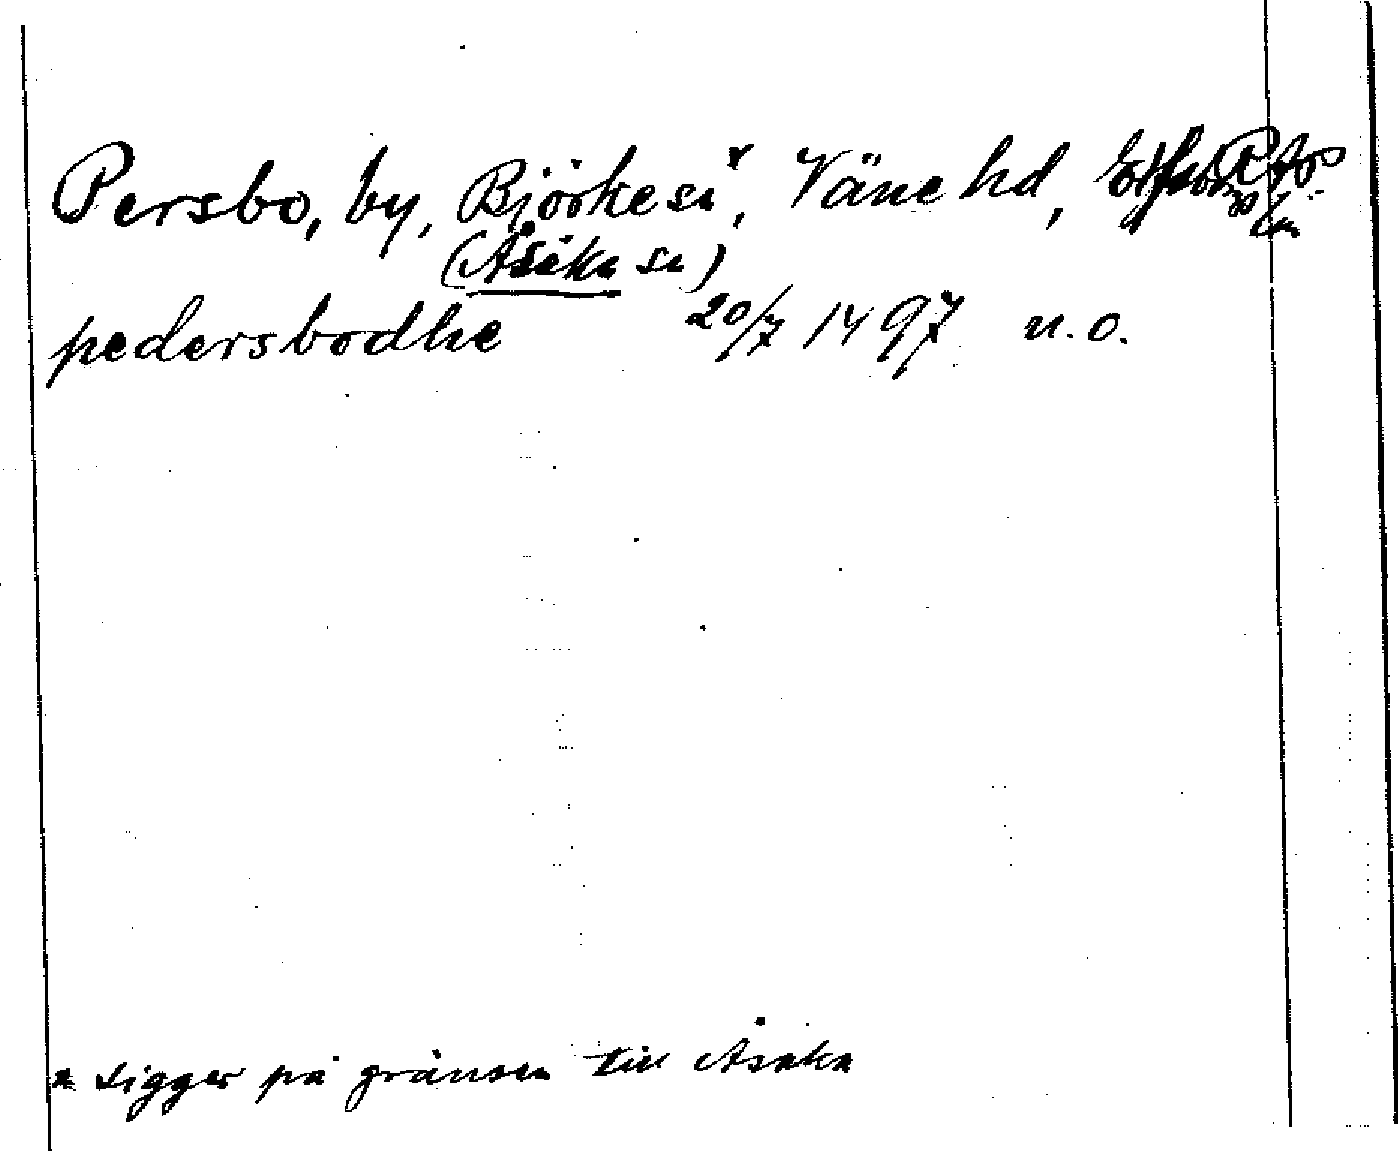 Persbo, by, Björke sn*, Väne hd, Älfsborgs län
(Åsaka sn)
pedersbodhe 20/7 1497 n. o.
* Ligger på gränsen till Åsaka